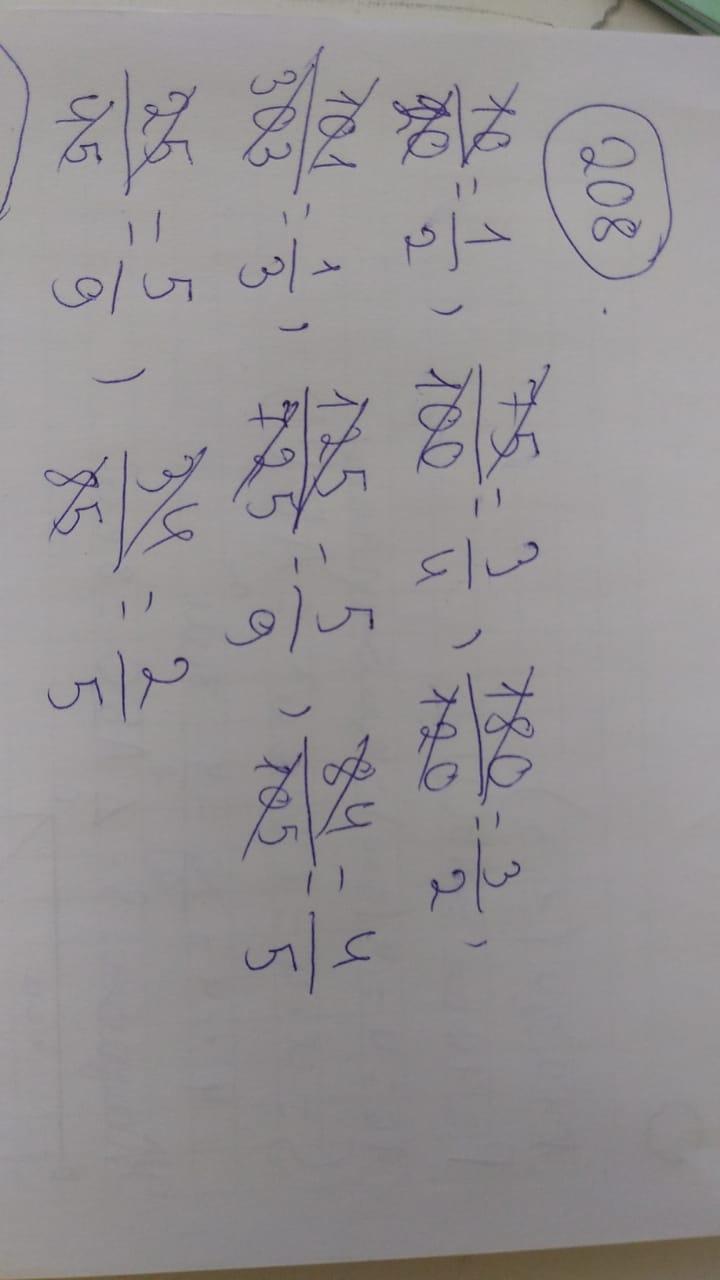 208
10/20 = 1/2, 75/100 = 3/4, 180/120 = 3/2,
101/303 = 1/3, 125/225 = 5/9, 84/105 = 4/5
25/45 = 5/9, 34/85 = 2/5